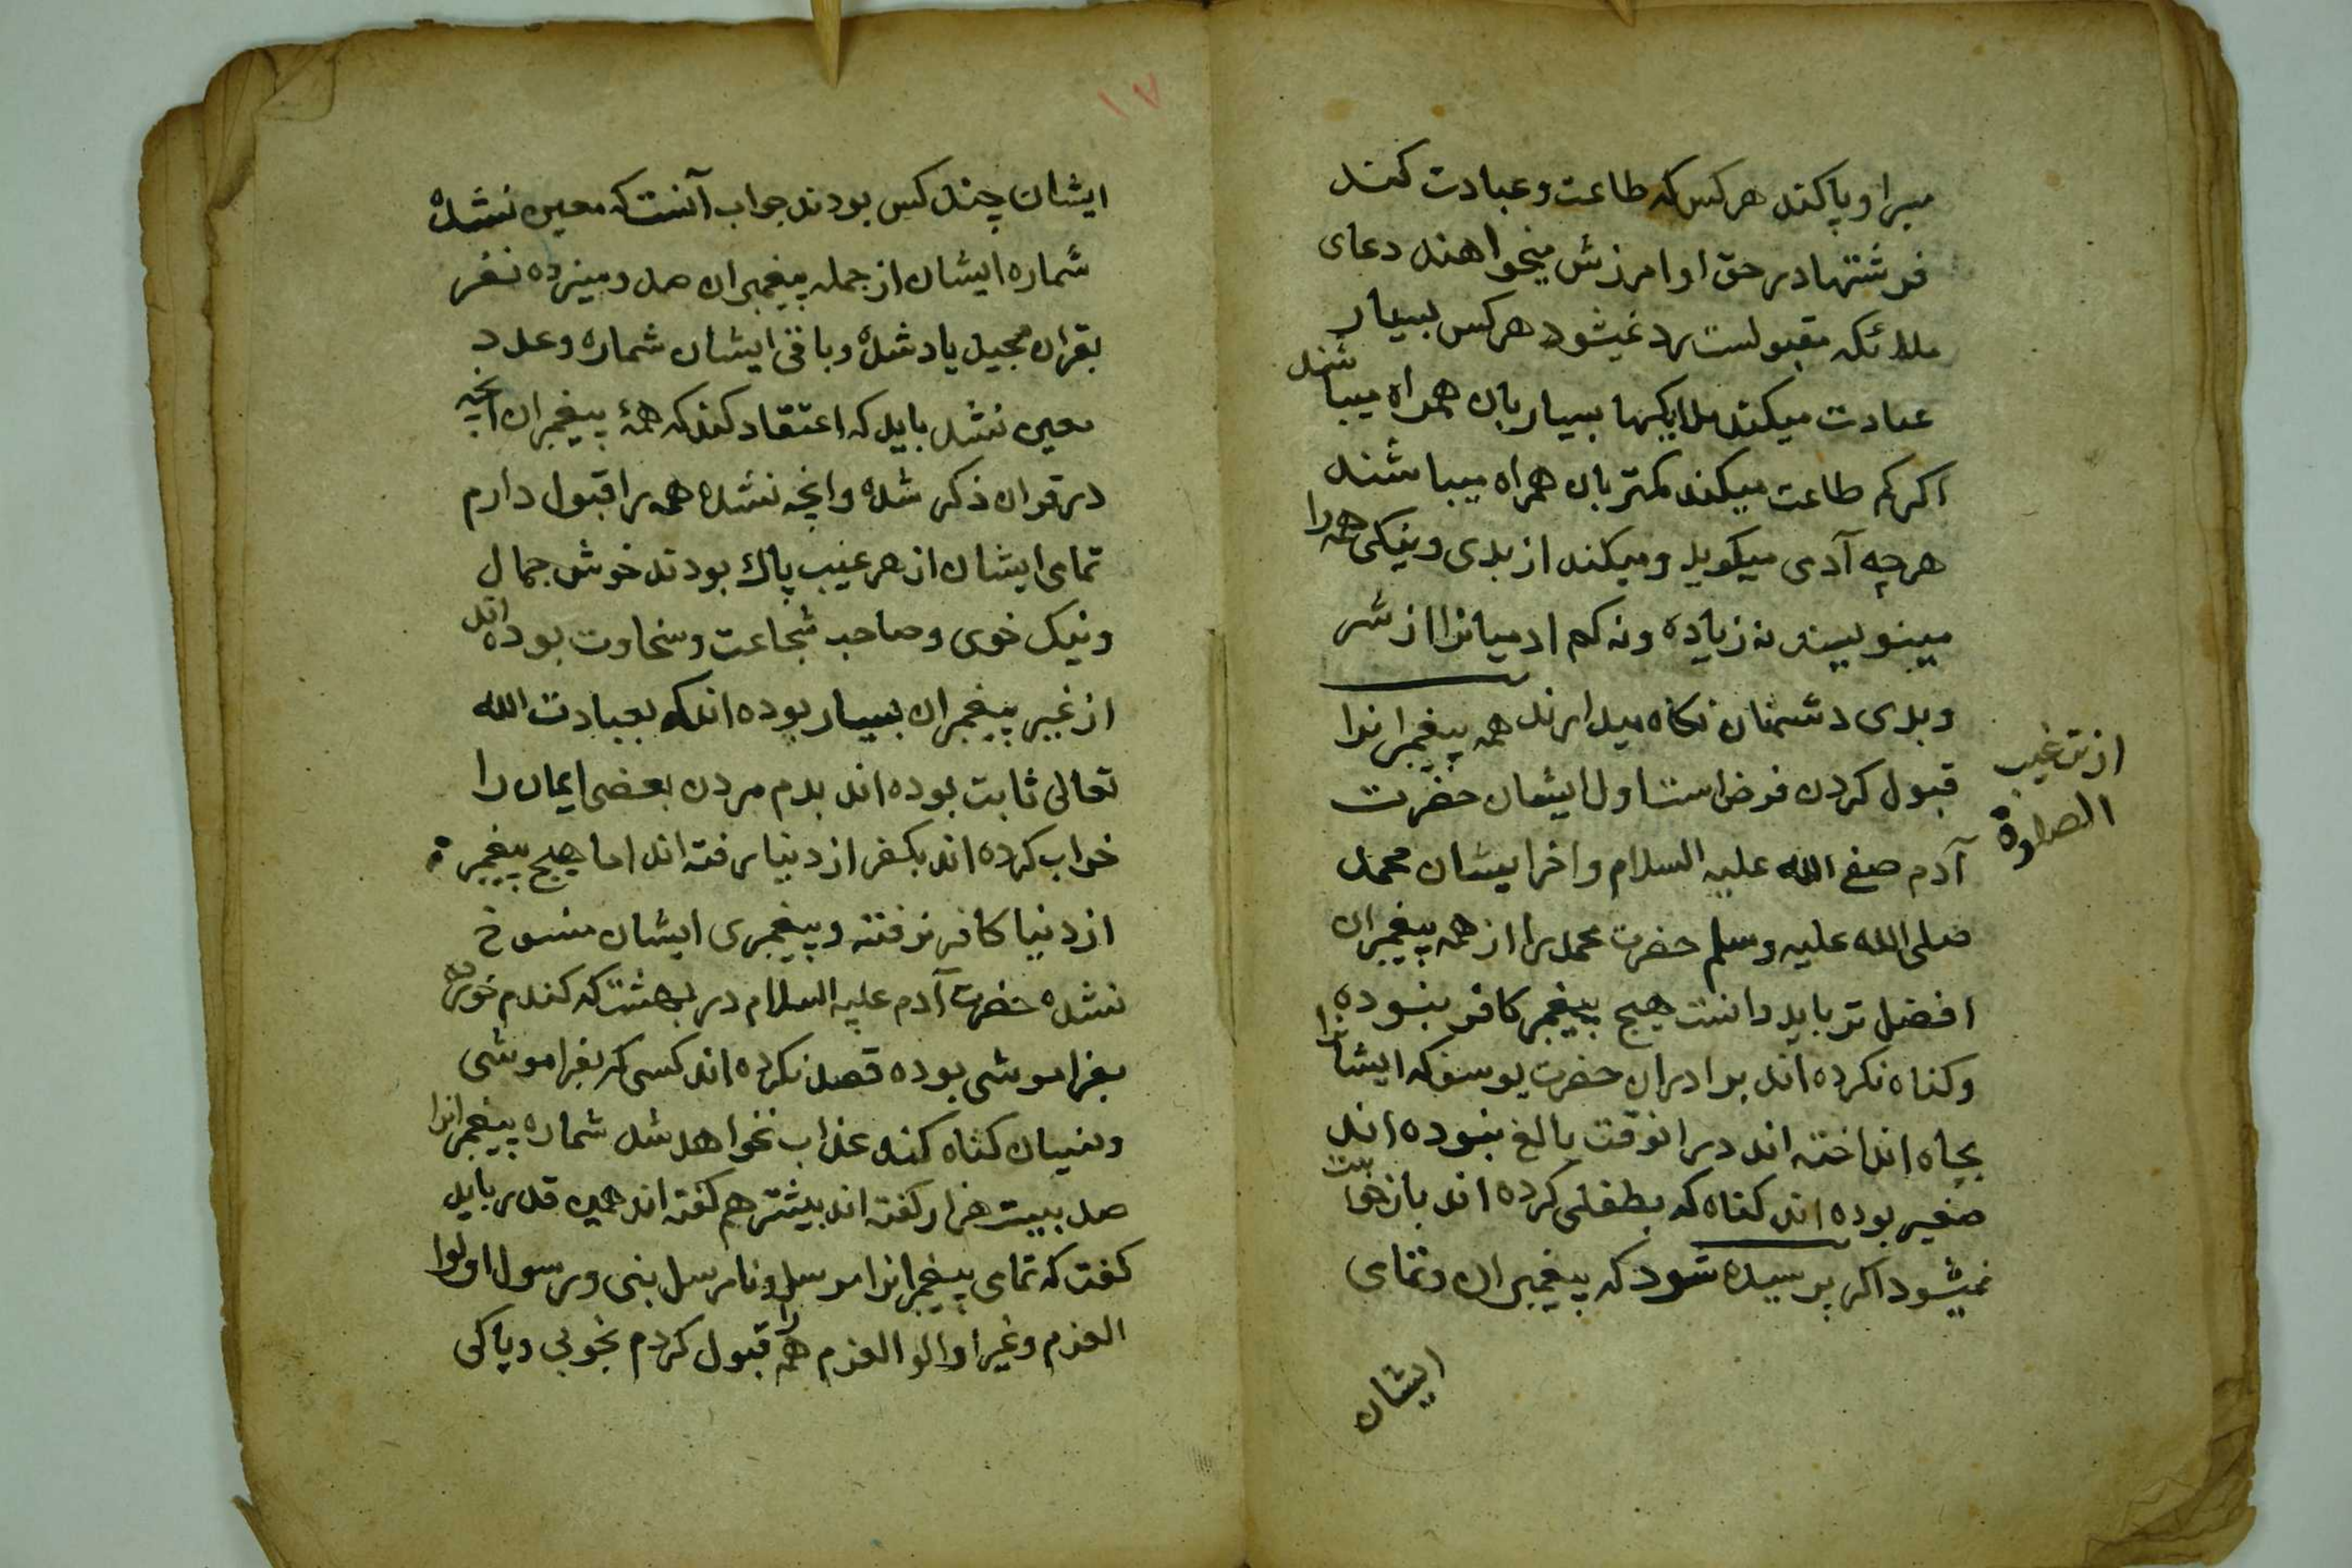 مبرا و پاکند هر کس که طاعت و عبادت کند
فرشتها در حق او امرزش میخواهند دعای
ملائکه مقبولست رد نمیشود هر کس بسیار
عبادت میکند ملایکها بسیار بان همراه میباشند
اکر کم طاعت میکند کمتر بان همراه میباشند
هر چه آدمی میکوید و میکند از بدی و نیکی همه را
مینویسند نه زیاده و نه کم ادمیانرا از شر
و بدی دشمنان نکاه میدارند همه پیغمبرانرا
قبول کردن فرض است اول ایشان حضرت
آدم صفی الله علیه السلام و اخر ایشان محمد
صلی الله علیه وسلم حضرت محمد را از همه پیغمبران
افضل تر باید دانست هیچ پیغمبر کافر نبوده
و کناه نکرده اند برادران حضرت یوسف که ایشانرا
بچاه انداخته اند در انوقت بالغ نبوده اند
صغیر بوده اند کناه که بطفلی کرده اند باز خواست
نمیشود اکر پرسیده شود که پیغمبران و تمامی
ایشان
از ترغیب
الصلوة
۱۷
ایشان چند کس بودند جواب آنست که معین نشده
شماره ایشان از جمله پیغمبران صد و سیزده نفر
بقران مجید یاد شده و باقی ایشان شماره و عدد
معین نشد باید که اعتقاد کند که همۀ پیغمبران انچه
در قران ذکر شده و انچه نشده همه را قبول دارم
تمامی ایشان از هر عیب پاك بودند خوش جمال
و نیک خوی و صاحب شجاعت و سخاوت بوده اند
از غیر پیغمبران بسیار بوده اند که بعبادت الله
تعالی ثابت بوده اند بدم مردن بعضی ایمان را
خراب کرده اند بکفر از دنیا رفته اند اما هیچ پیغمبر
از دنیا کافر نرفته و پیغمبری ایشان منسوخ
نشده حضرت آدم علیه السلام در بهشت که کندم خورده
بفراموشی بوده قصد نکرده اند کسی که بفراموشی
و نسیان کناه کند عذاب نخواهد شد شماره پیغمبرانرا
صد بیست هزار کفته اند بیشتر هم کفته اند همین قدر باید
کفت که تمامی پیغمبرانرا مرسل و نامرسل نبی و رسول اولوا
العزم و غیر اوالو العزم همه را قبول کردم بخوبی و پاکی